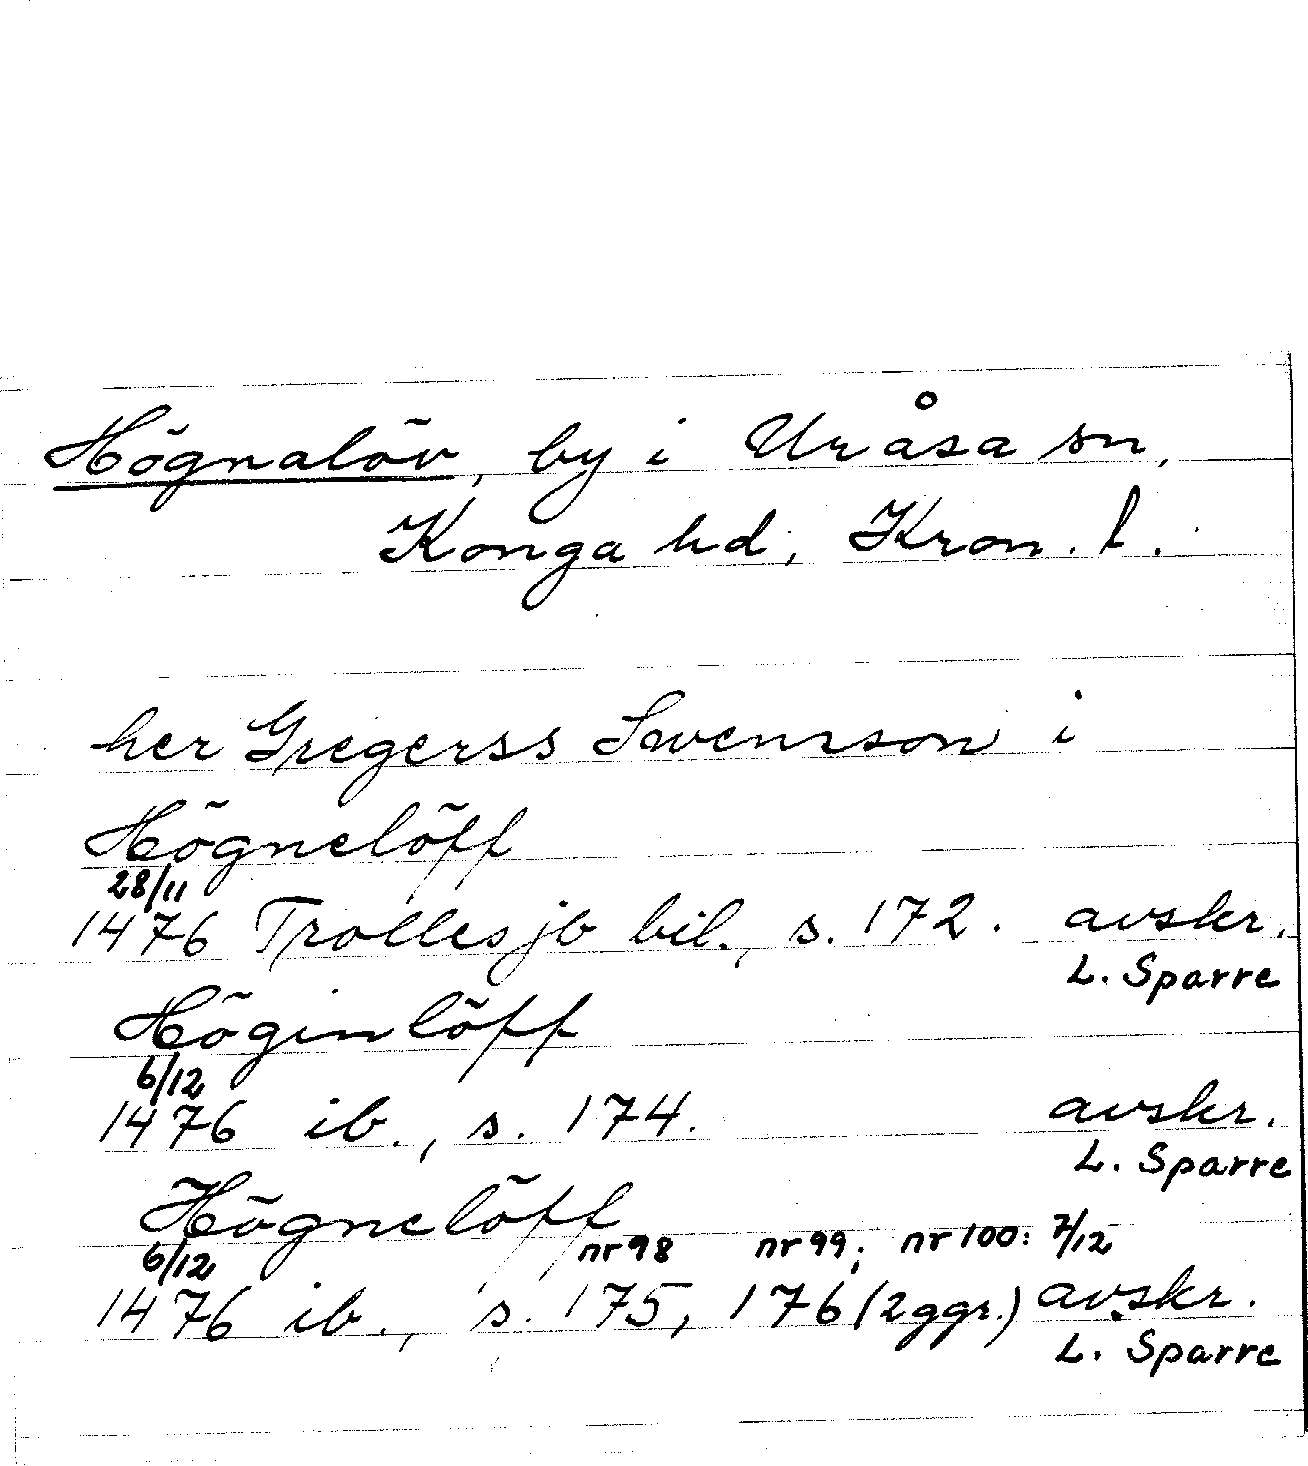 Högnalöv, by i Uråsa sn,
Konga hd, Kron. l.
her Gregerss Swensson i
Högnelöff
28/11
1476 Trolles jb bil., s. 172. avskr.
L. Sparre
Höginlöff
6/12
1476 ib., s. 174. avskr.
L. Sparre
Högnelöff
6/12 nr 98 nr 99; nr 100: 7/12
1476 ib., s. 175, 176 (2 ggr.) avskr.
L. Sparre